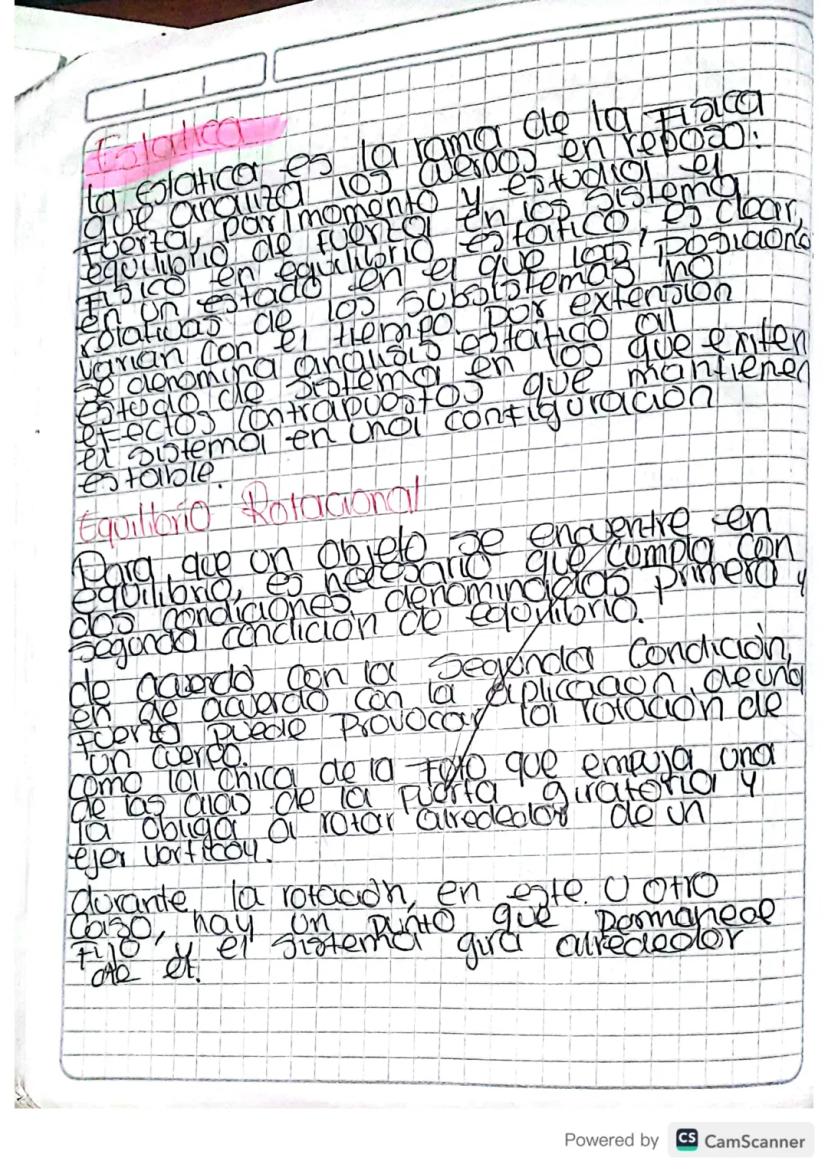 Estatica
la estatica es la rama de la Fisica
que analiza los cuerpos en reposo:
fuerza, par/momento y estudia el
equilibrio de fuerza en los sistema
Fisico en equilibrio estatico, es
en un estado en el que las posicione
relativas de los subsistemas no
varian con el tiempo. por extension
se denomina analisis estatico al
estudo de sistema en los que exiten
efectos contrapuestos que mantienen
el sistema en una configuracion
estable.
Equilibrio Rotacional
Para que un objeto se encuentre en
equilibrio, es necesario que cumpla con
dos condiciones denominadas primera y
segunda condición de equilibrio.
de acuerdo con la segunda condición,
en de acuerdo con la aplicacion de una
fuerta puede provocar la rotación de
un cuerpo.
como la chica de la foto que empuja una
de las alas de la puerta giratoria y
la obliga a rotar alrededor de un
ejer
durante la rotación, en este U otro
caso, hay un punto que permanece
Fijo y el sistema gira alrededor
de el.
Powered by CS CamScanner